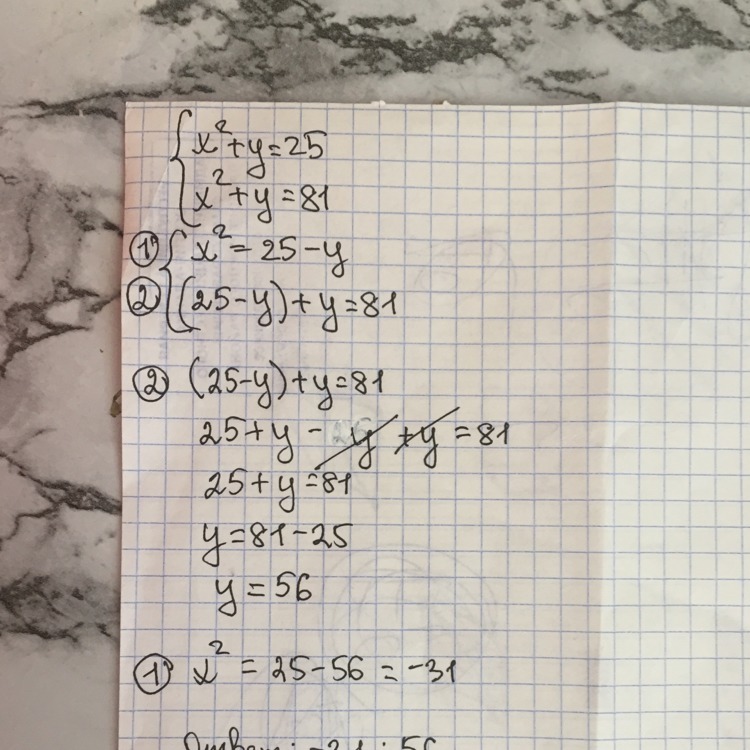 x² + y = 25
x² + y = 81
① x² = 25 - y
② (25 - y) + y = 81
② (25 - y) + y = 81
25 + y - y + y = 81
25 + y = 81
y = 81 - 25
y = 56
① x² = 25 - 56 = -31
Ответ: -31; 56